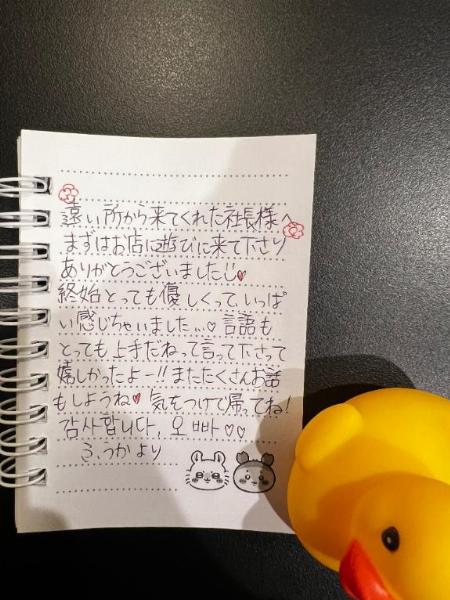 遠い所から来てくれた社長様へ
まずはお店に遊びに来て下さり
ありがとうございました!!♥
終始とっても優しくって、いっぱ
い感じちゃいました...♡ 言語も
とっても上手だねって言って下さって
嬉しかったよー!! またたくさんお話
もしようね♥ 気をつけて帰ってね!
감사합니다, 오빠♡♡
ふうかより